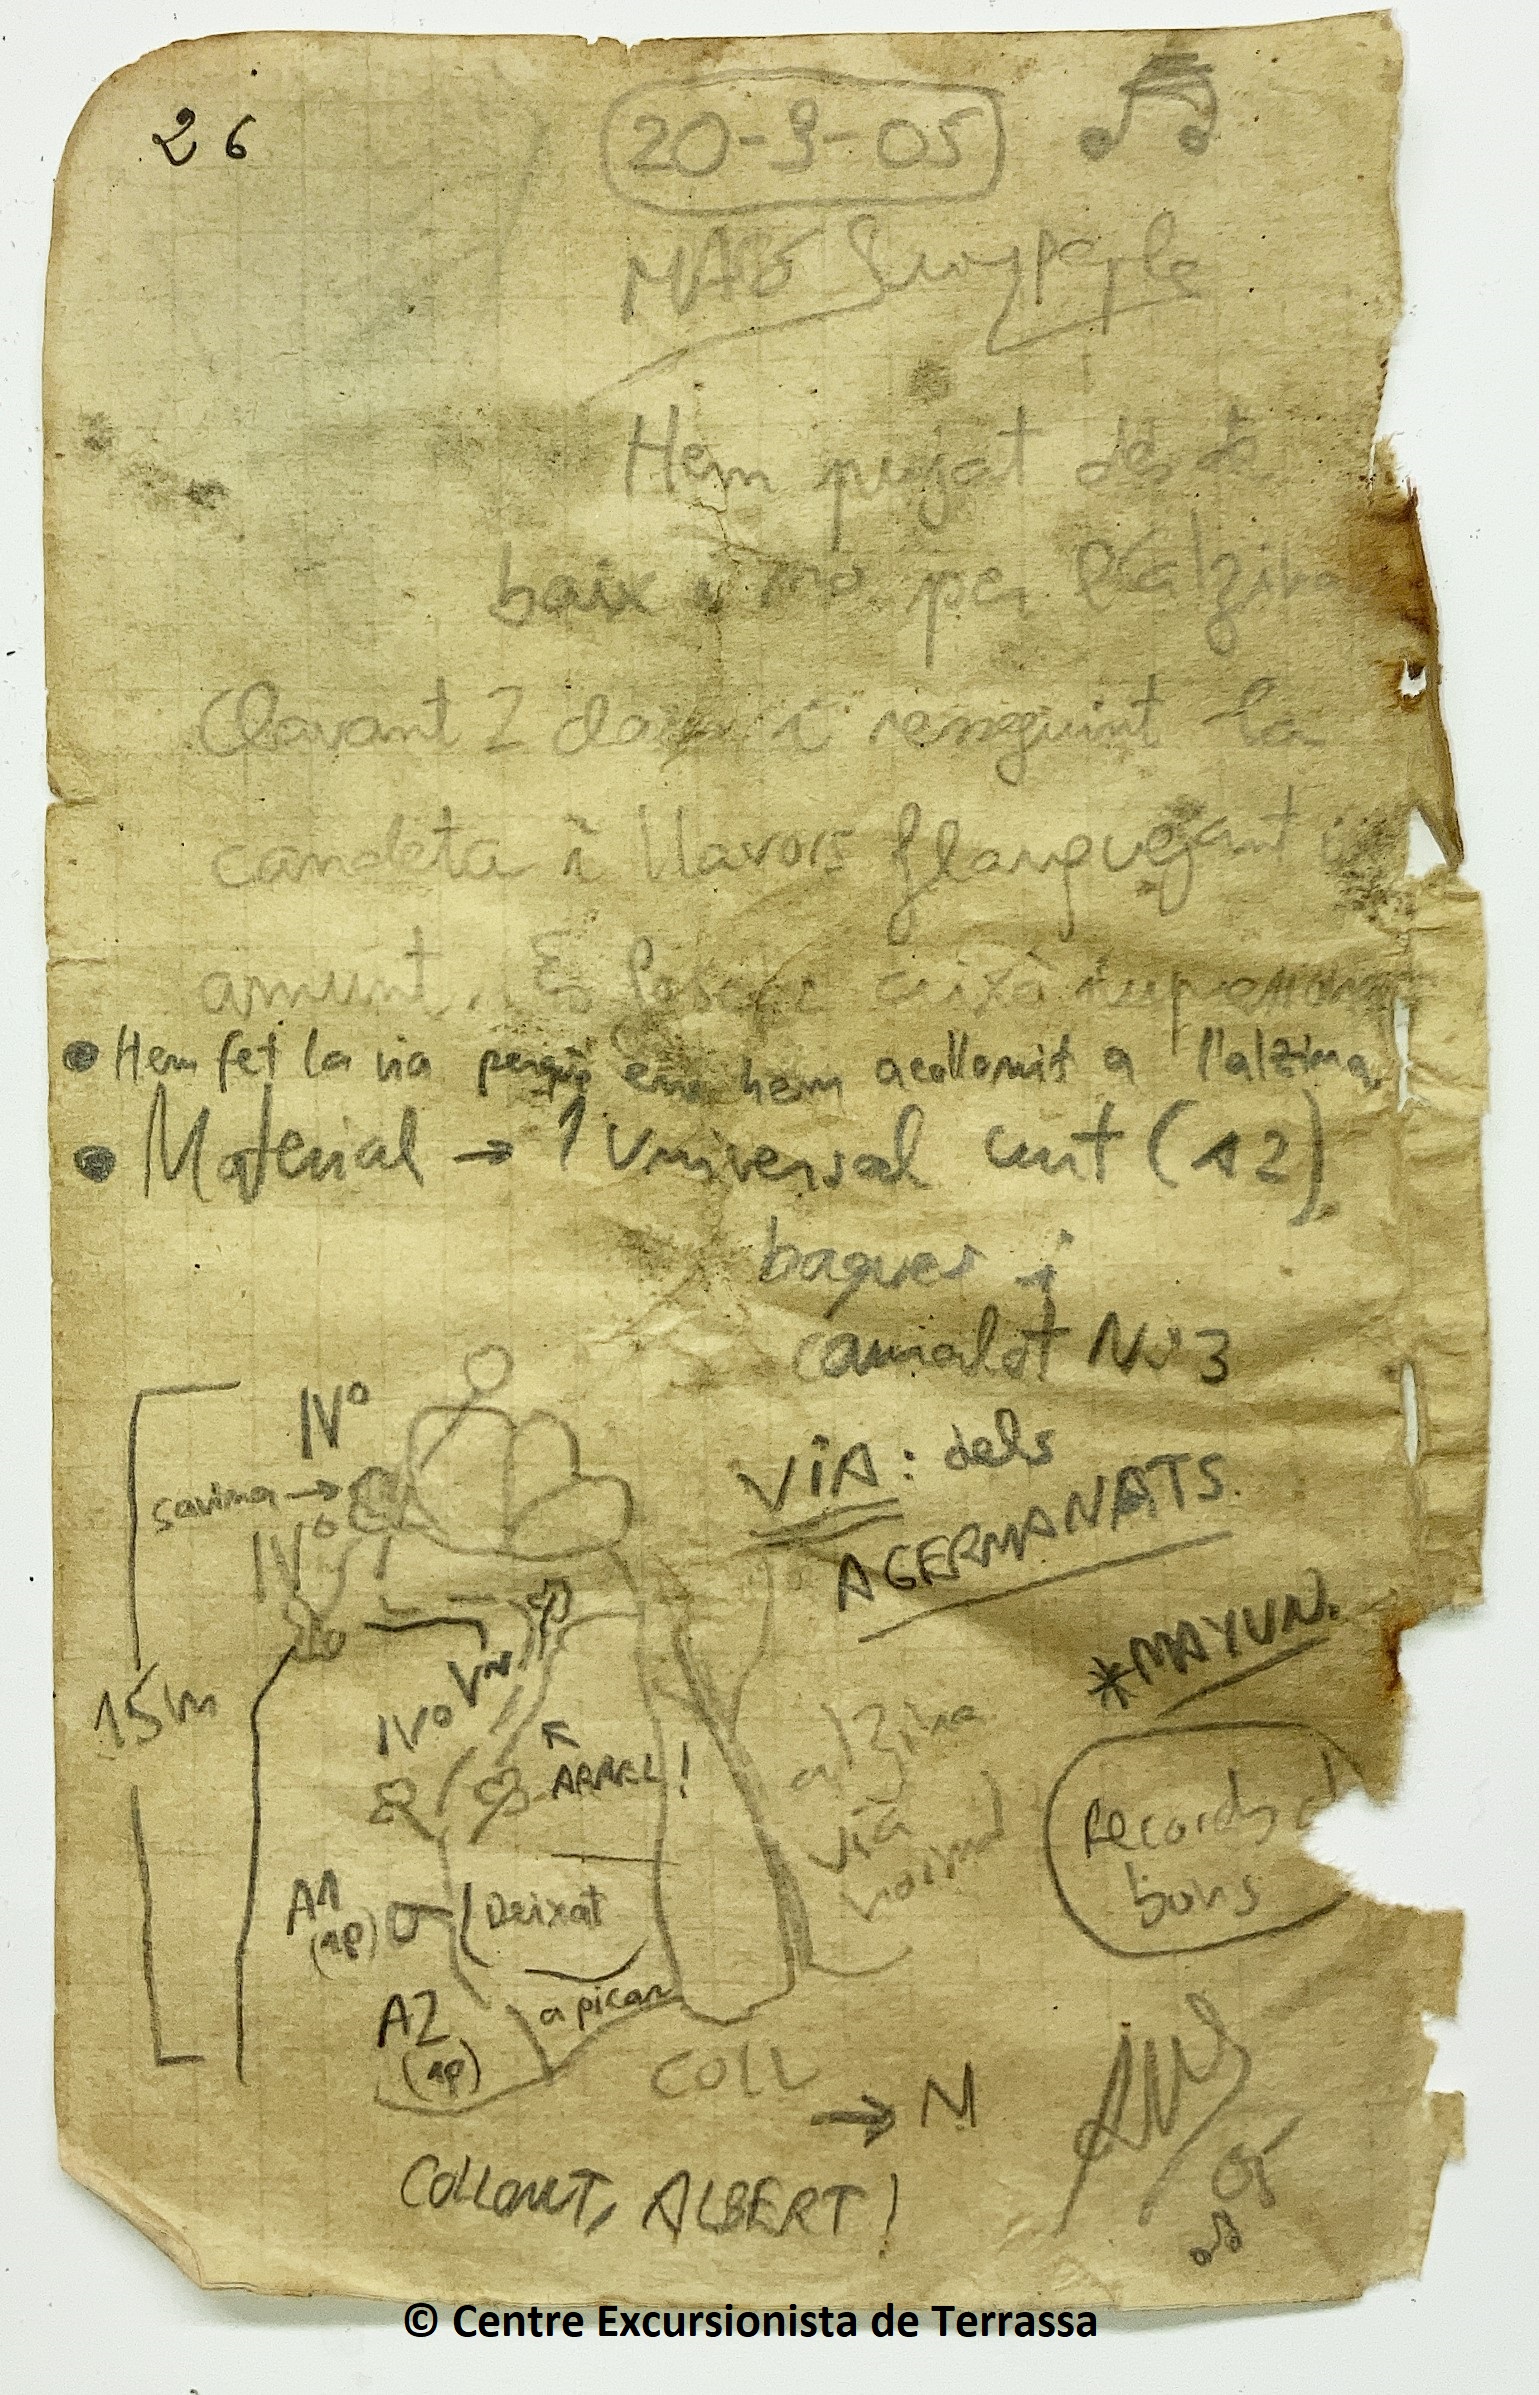 26
20-3-05
Hem pujat des de
baix i no per l'alzina
Clavant 2 claus i resseguint la
canaleta i llavors flanquejant i
amunt. És això
• Hem fet la via perquè ens hem acollonit a l'alzina
• Material → 1 Universal curt (A2)
bagues i
camalot Nº3
VIA: dels
AGERMANATS.
*MAYUN.
Records
bons
IVº
savina →
IVº
15m
IVº
ARREL!
alzina
via
normal
A1
(ap)
Deixat
A2
(ap)
a picar
COLL
→ N
COLLONUT, ALBERT!
05
© Centre Excursionista de Terrassa